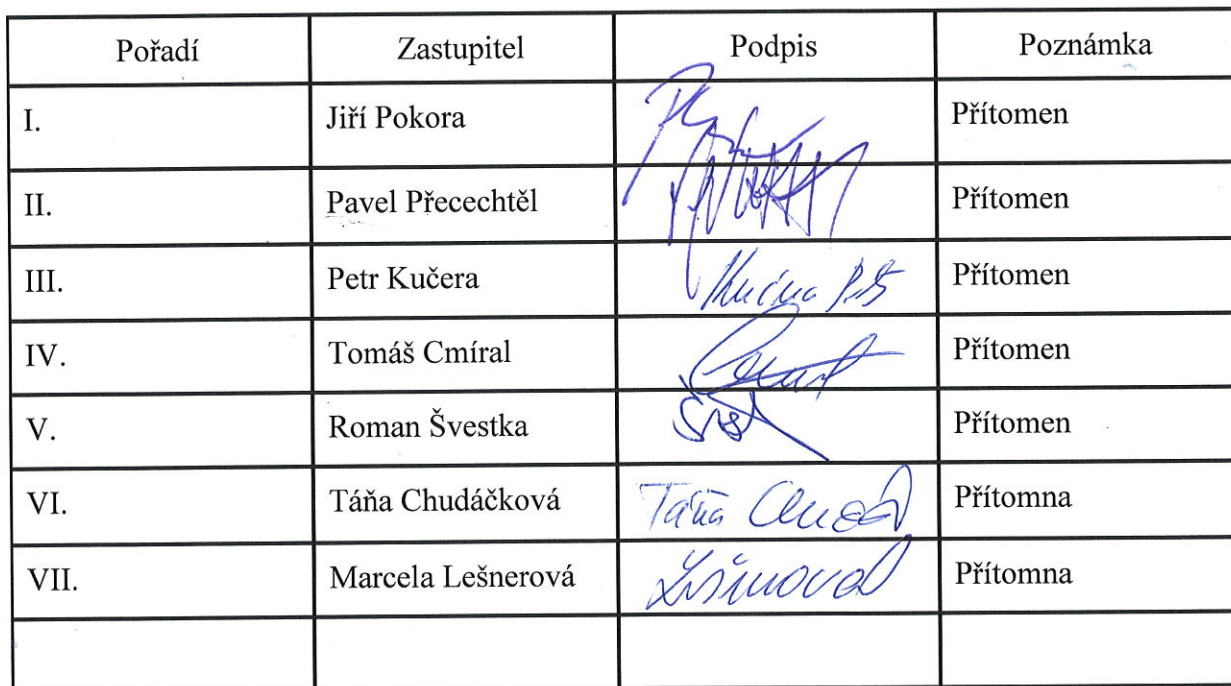 Pořadí Zastupitel Podpis Poznámka
I. Jiří Pokora Přítomen
II. Pavel Přecechtěl Přítomen
III. Petr Kučera Přítomen
IV. Tomáš Cmíral Přítomen
V. Roman Švestka Přítomen
VI. Táňa Chudáčková Táňa Přítomna
VII. Marcela Lešnerová Přítomna